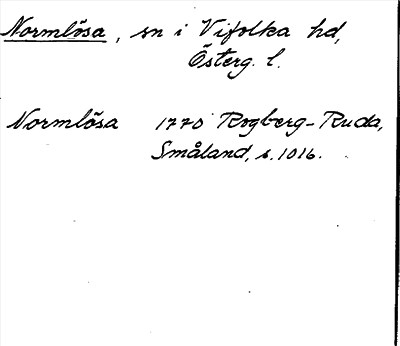 Normlösa, sn i Vifolka hd,
Österg. l.
Normlösa 1770 Rogberg-Ruda,
Småland, s. 1016.